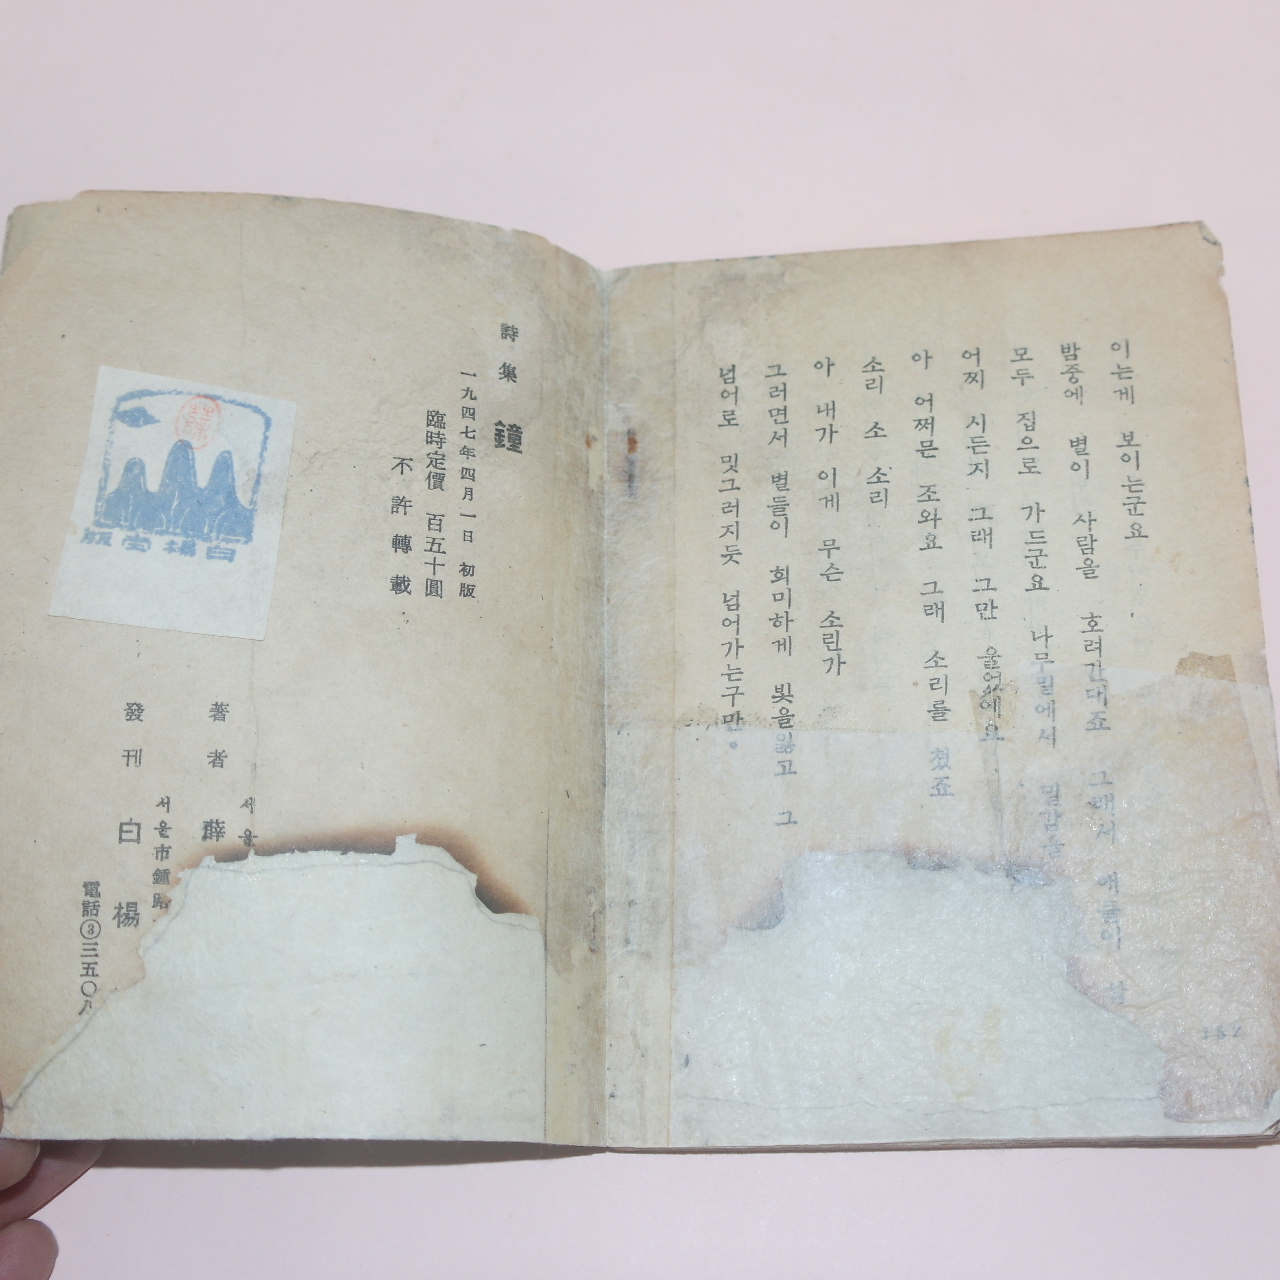 이는게 보이는군요
밤중에 별이 사람을 호려간대죠 그래서 얘들이
모두 집으로 가드군요 나무밑에서
어찌 시든지 그래 그만 울었에요
아 어쩌믄 조와요 그래 소리를 첬죠
소리 소 소리
아 내가 이게 무슨 소린가
그러면서 별들이 희미하게 빛을잃고 그
넘어로 밋그러지듯 넘어가는구만。
182
詩集 鐘
一九四七年四月一日 初版
臨時定價 百五十圓
不許轉載
서울
著者 薛
서울市鍾路
發刊 白楊
電話③三五〇八
白楊堂版